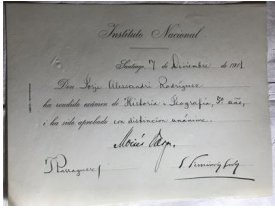 Instituto Nacional
Santiago 7 de Diciembre de 1911
Don Jorge Alessandri Rodríguez
ha rendido exámen de Historia i Jeografía, 5º año,
i ha sido aprobado con distincion unánime.
Moisés